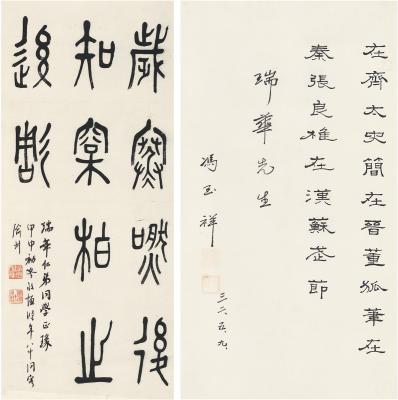 在齊太史簡在晉董狐筆在
秦張良椎在漢蘇武節
瑞華先生
馮玉祥
三六、五、九、
歲寒然後
知松柏之
後彫
瑞華仁弟同學正篆
甲申初冬時年八十同客
渝州